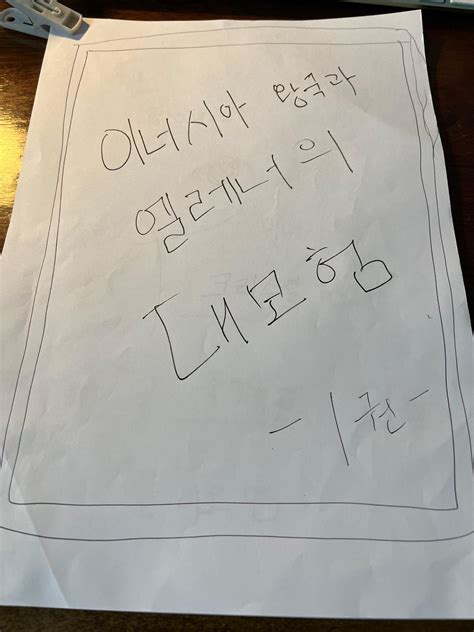 이너시아 왕국과
엘레너의
대모험
-1권-